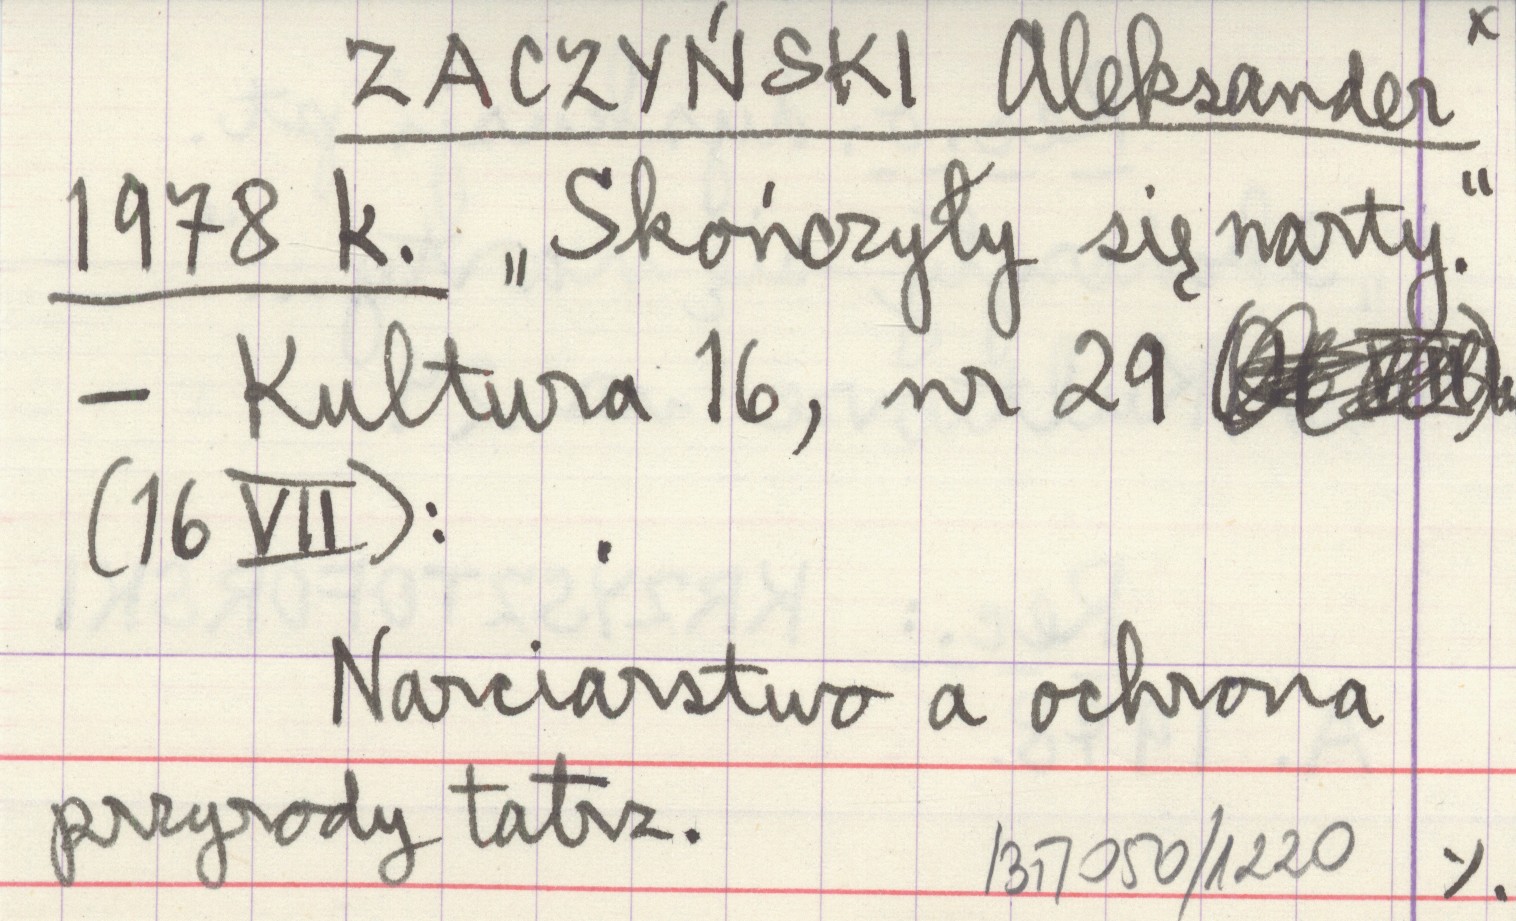 x
ZACZYŃSKI Aleksander
1978 k. „Skończyły się narty."
– Kultura 16, nr 29
(16 VII):
Narciarstwo a ochrona
przyrody tatrz.
050/1220 %.